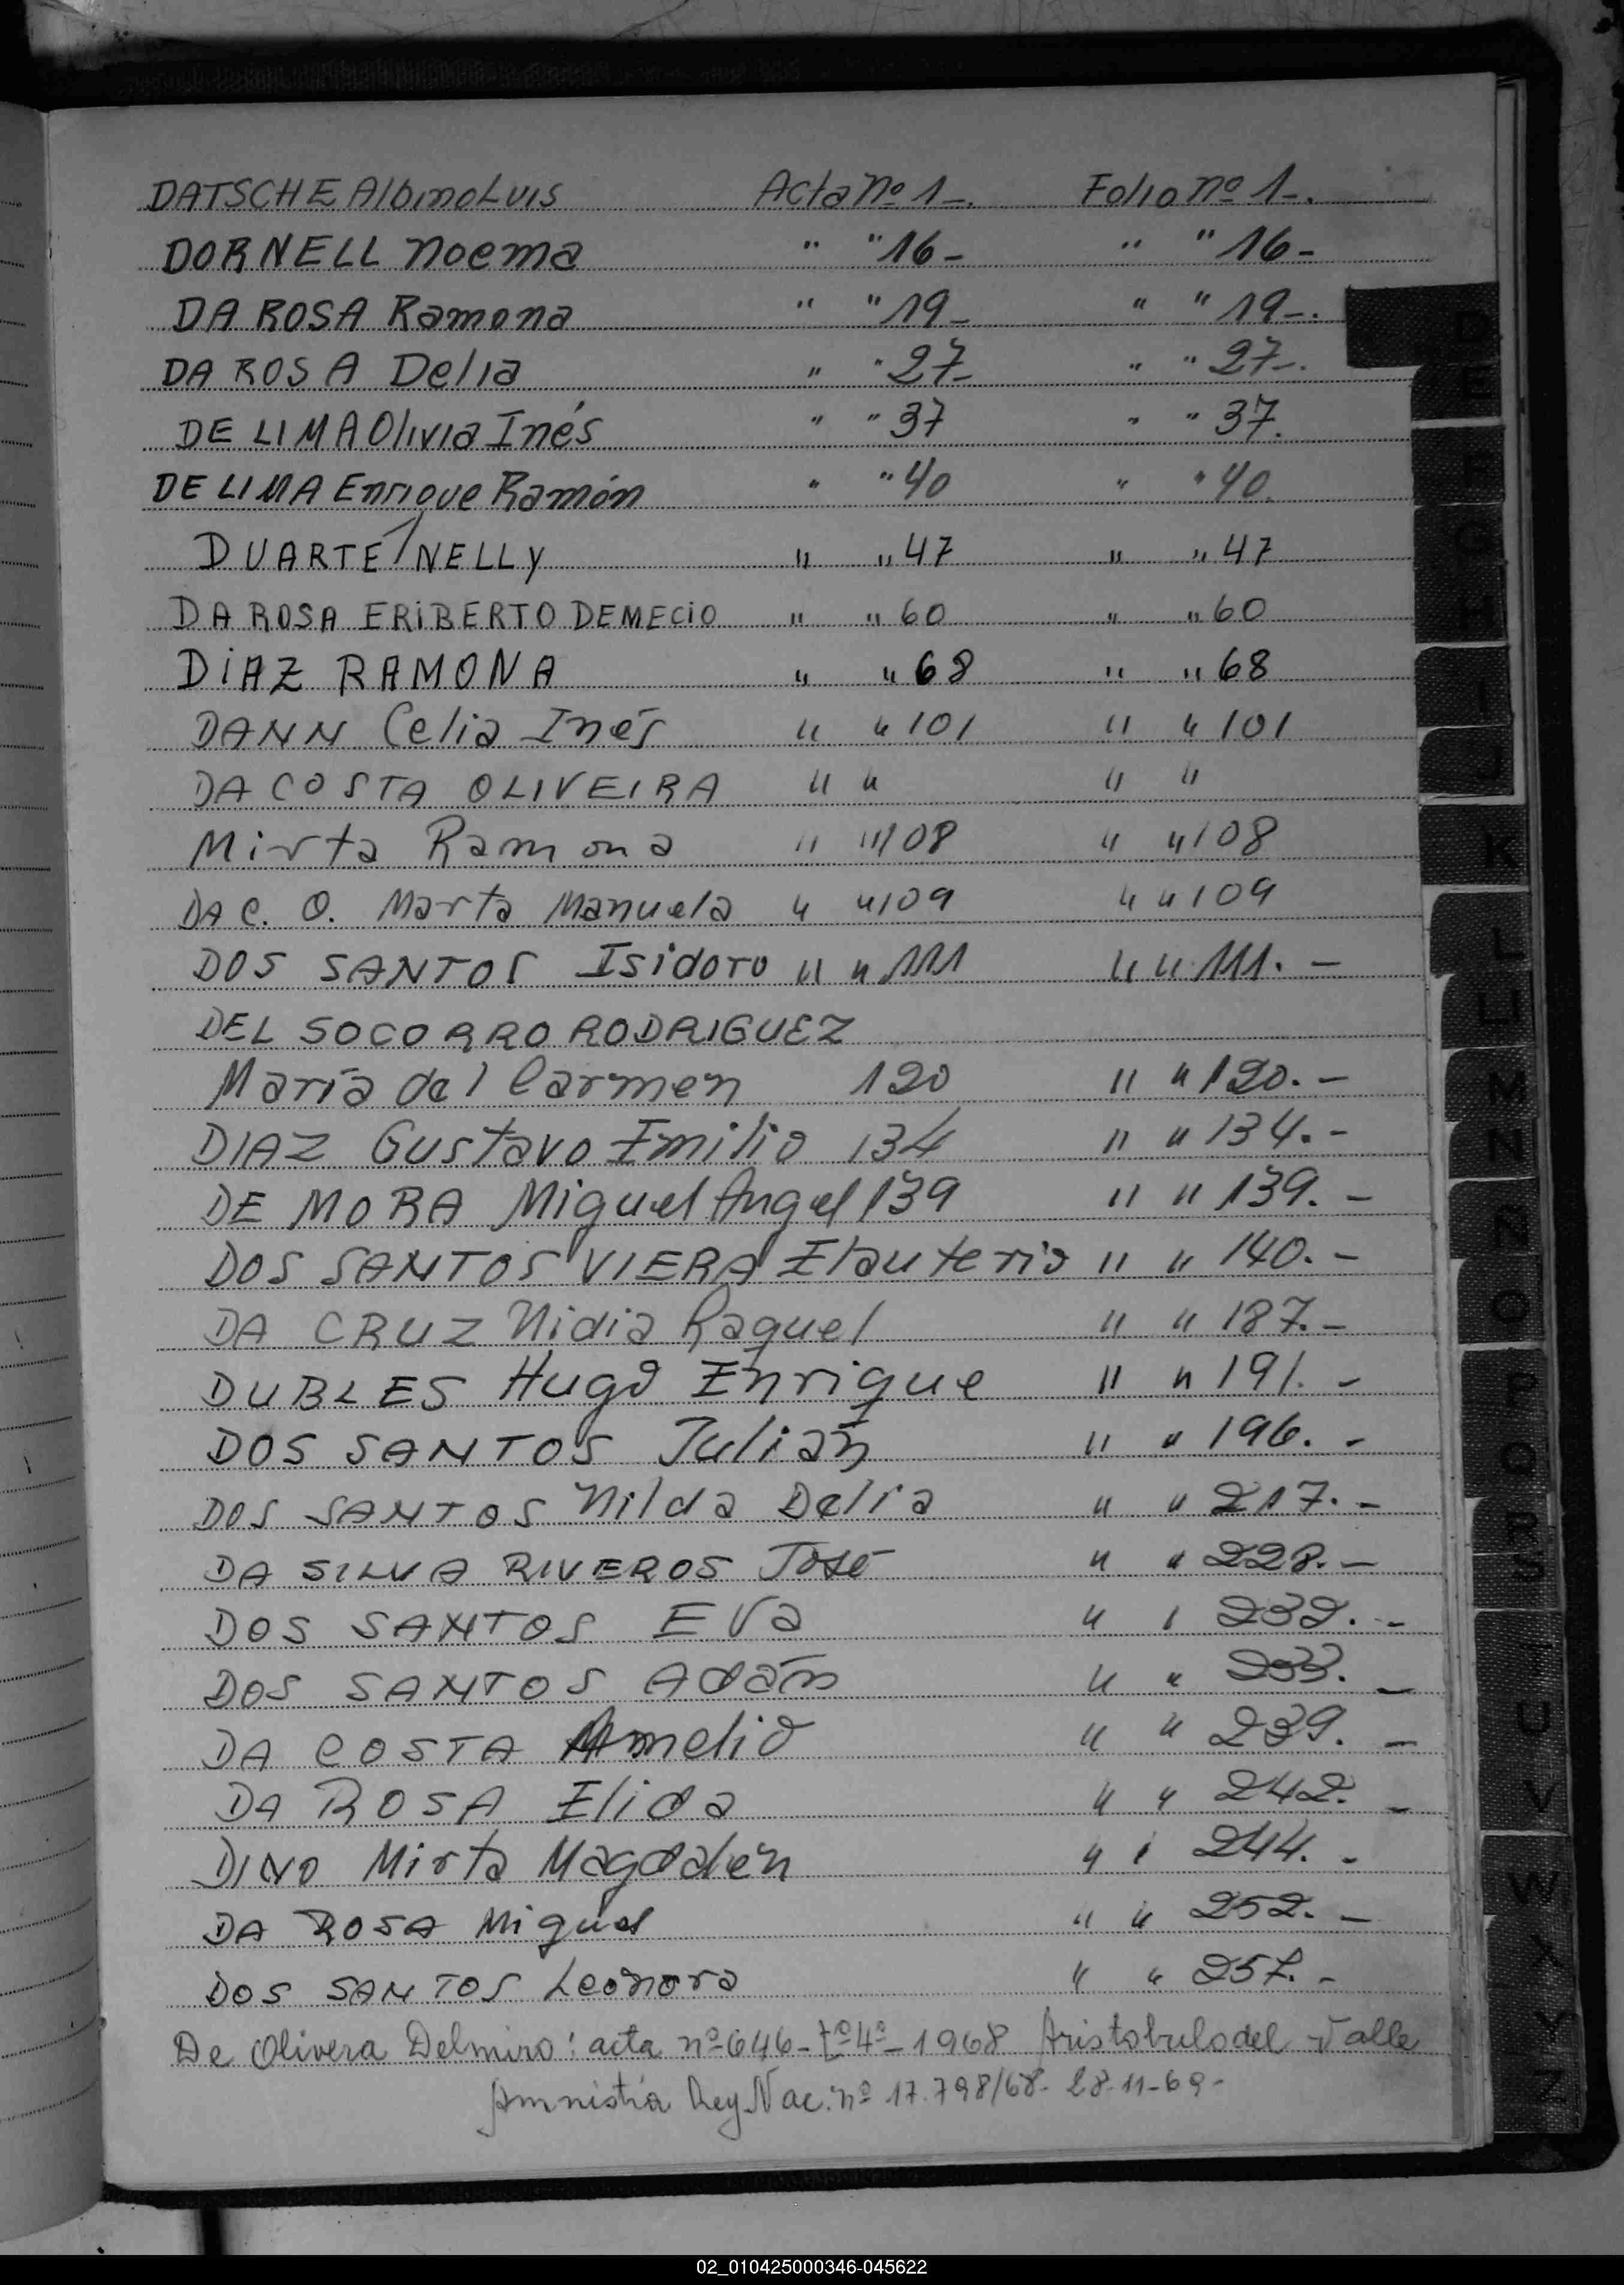 DATSCHE Albino Luis Acta nº 1-. Folio nº 1-.
DORNELL noema " " 16- " " 16-
DA ROSA Ramona " " 19- " " 19-.
DA ROSA Delia " " 27- " " 27-.
DE LIMA Olivia Inés " " 37 " " 37.
DE LIMA Enrique Ramón " " 40 " " 40.
DUARTE/NELLY " " 47 " " 47
DA ROSA ERIBERTO DEMECIO " " 60 " " 60
DIAZ RAMONA " " 68 " " 68
DANN Celia Inés " " 101 " " 101
DA COSTA OLIVEIRA " " " "
Mirta Ramona " " 108 " " 108
DA C. O. Marta Manuela " " 109 " " 109
DOS SANTOS Isidoro " " 111 " " 111. -
DEL SOCORRO RODRIGUEZ
María del Carmen 120 " " 120. -
DIAZ Gustavo Emilio 134 " " 134. -
DE MORA Miguel Angel 139 " " 139. -
DOS SANTOS VIERA Elauterio " " 140. -
DA CRUZ Nidia Raquel " " 187. -
DUBLES Hugo Enrique " " 191. -
DOS SANTOS Julián " " 196. -
DOS SANTOS Nilda Delia " " 217. -
DA SILVA RIVEROS José " " 228. -
DOS SANTOS Eva " " 232. -
DOS SANTOS Adán " " 233. -
DA COSTA Amelio " " 239. -
DA ROSA Elida " " 242. -
DINO Mirta Magdalen " " 244. -
DA ROSA Miguel " " 252. -
DOS SANTOS Leonora " " 257. -
De Olivera Delmiro: acta nº 646- tº 4º- 1968 Aristobulo del Valle
Amnistía Ley Nac. nº 17.798/68- 28-11-69-
D
E
F
G
H
I
J
K
L
LL
M
N
Ñ
O
P
Q
R
S
T
U
V
W
X
Y
Z
02_010425000346-045622